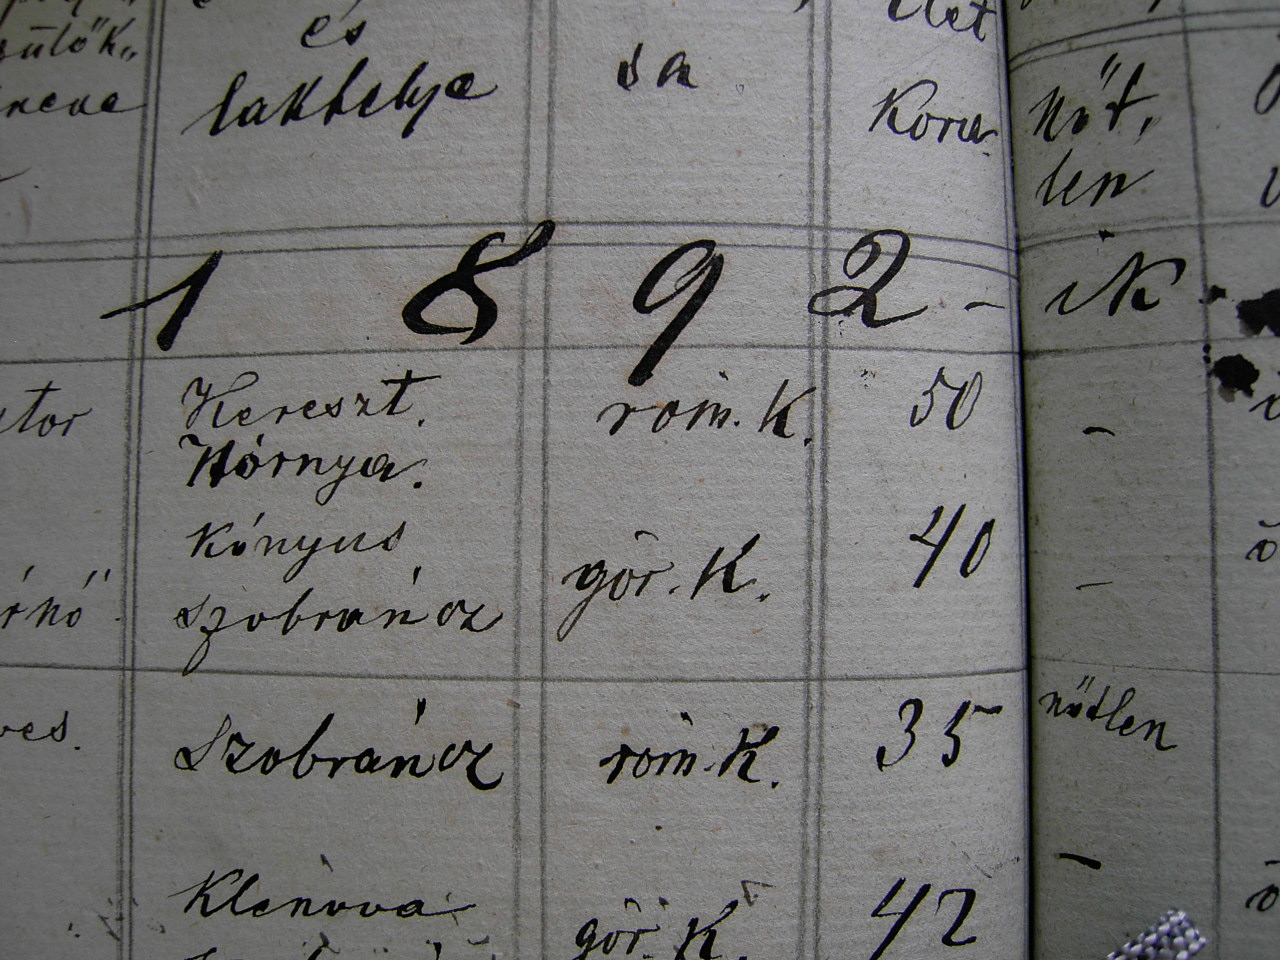 és
lakhelye
sa
élet
Kora
nőt,
len
1892-ik
Kereszt.
Hórnya.
rom. K.
50
-
Kónyus
Szobráncz
gör. K.
40
-
Szobráncz
rom. K.
35
nőtlen
Klenova
gör. K.
42
-